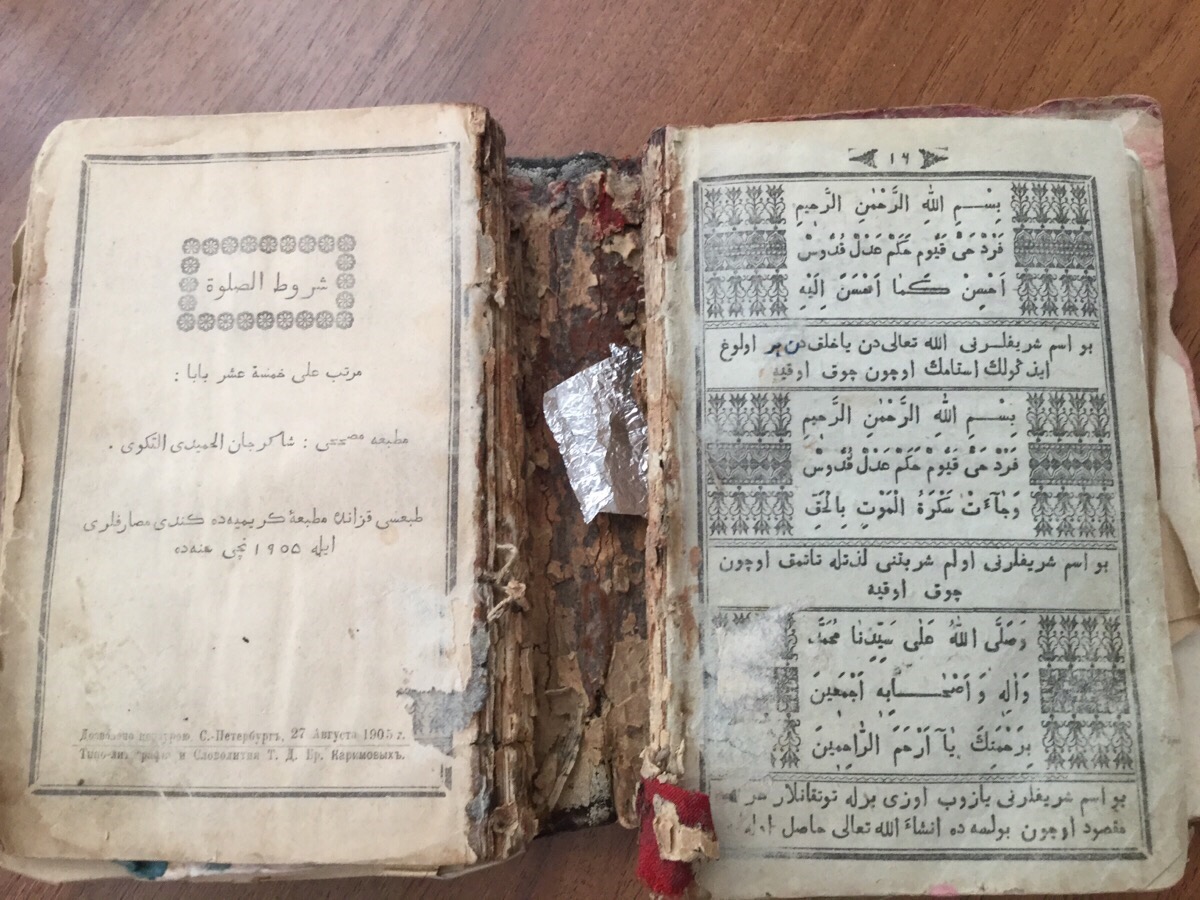 شروط الصلوة
مرتب على خمسة عشر بابا :
مطبعه مصححى : شاكرجان الحميدى التكوى .
طبعسى قزانڭ مطبعۀ كريميه‌ده كندى مصارفلرى
ايله ١٩٠٥ نچى سنه‌ده
Дозволено цензурою. С.-Петербургъ, 27 Августа 1905 г.
Типо-литографія и Словолитня Т. Д. Бр. Каримовыхъ.
١٦
بِسْمِ اللهِ الرَّحْمٰنِ الرَّحِيمِ
فَرْدٌ حَىٌّ قَيُّومٌ حَكَمٌ عَدْلٌ قُدُّوسٌ
اَحْسِنْ كَمَا اَحْسَنَ اِلَيْهِ
بو اسم شريفلرنى الله تعالى‌دن ياخلق‌دن بر اولوغ
ايدگولك استامك اوچون چوق اوقيه
بِسْمِ اللهِ الرَّحْمٰنِ الرَّحِيمِ
فَرْدٌ حَىٌّ قَيُّومٌ حَكَمٌ عَدْلٌ قُدُّوسٌ
وَجَاۤءَتْ سَكْرَةُ الْمَوْتِ بِالْحَقِّ
بو اسم شريفلرنى اولم شربتنى لذتله تاتمق اوچون
چوق اوقيه
وَصَلَّى اللهُ عَلٰى سَيِّدِنَا مُحَمَّدٍ
وَاٰلِهِ وَاَصْحَابِهِ اَجْمَعِينَ
بِرَحْمَتِكَ يَاۤ اَرْحَمَ الرَّاحِمِينَ
بو اسم شريفلرنى يازوب اوزى بزله توتقانلار هر
مقصود اوچون بولسه ده انشاء الله تعالى حاصل اوله